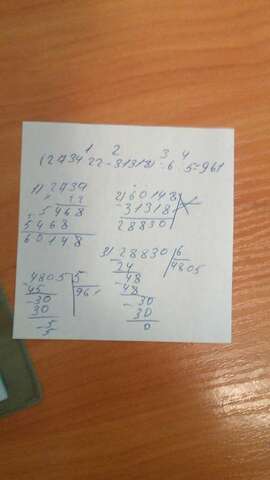 1 2 3 4
(2734 22-31318):6 5=961
1) 2734
22
5468
5468
60148
2) 60148
-31318
28830
3) 28830 6
24 4805
-48
48
-30
30
0
-4805 5
45 961
-30
30
-5
5